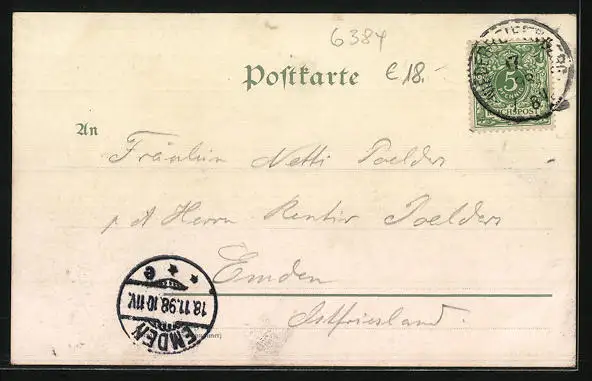 6384
Postkarte
€ 18.-
5
PFENNIG
REICHSPOST
17
An
Fräulein Netti Poelders
p. A Herrn Rentier Poelders
Emden
Ostfriesland.
EMDEN
18.11.98.10-11V.
* * e